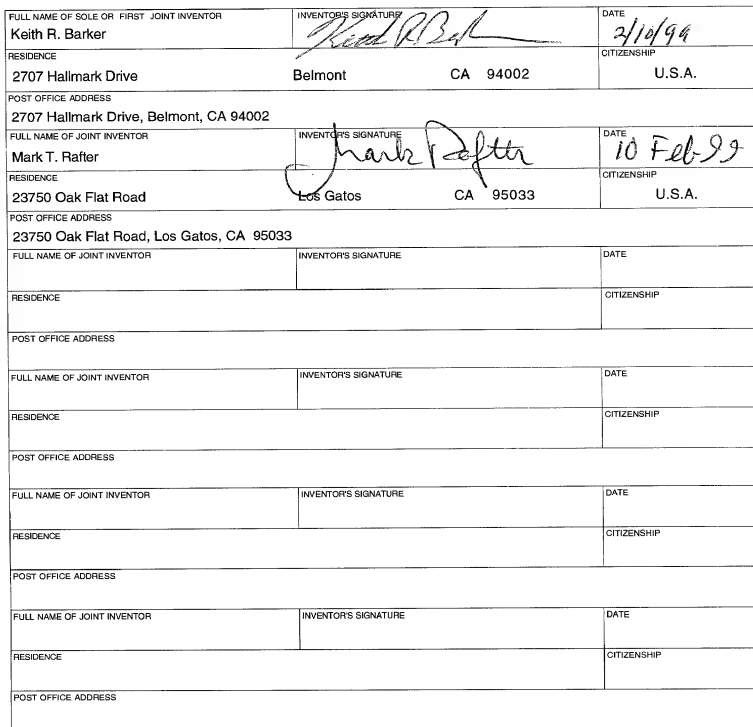 FULL NAME OF SOLE OR FIRST JOINT INVENTOR INVENTOR'S SIGNATURE DATE
Keith R. Barker Keith R. Barker 2/10/99
RESIDENCE CITIZENSHIP
2707 Hallmark Drive Belmont CA 94002 U.S.A.
POST OFFICE ADDRESS
2707 Hallmark Drive, Belmont, CA 94002
FULL NAME OF JOINT INVENTOR INVENTOR'S SIGNATURE DATE
Mark T. Rafter Mark Rafter 10 Feb-99
RESIDENCE CITIZENSHIP
23750 Oak Flat Road Los Gatos CA 95033 U.S.A.
POST OFFICE ADDRESS
23750 Oak Flat Road, Los Gatos, CA 95033
FULL NAME OF JOINT INVENTOR INVENTOR'S SIGNATURE DATE
RESIDENCE CITIZENSHIP
POST OFFICE ADDRESS
FULL NAME OF JOINT INVENTOR INVENTOR'S SIGNATURE DATE
RESIDENCE CITIZENSHIP
POST OFFICE ADDRESS
FULL NAME OF JOINT INVENTOR INVENTOR'S SIGNATURE DATE
RESIDENCE CITIZENSHIP
POST OFFICE ADDRESS
FULL NAME OF JOINT INVENTOR INVENTOR'S SIGNATURE DATE
RESIDENCE CITIZENSHIP
POST OFFICE ADDRESS